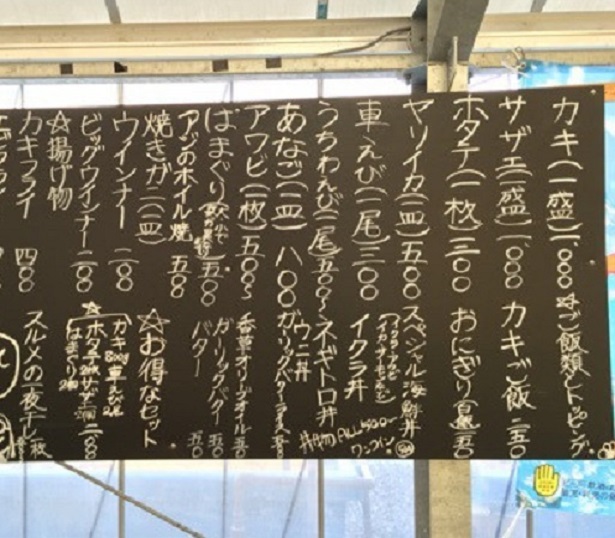 カキ(一盛)一、〇〇〇
サザエ(一盛)一、〇〇〇
ホタテ(一枚)三〇〇
ヤリイカ(一匹)五〇〇
車えび(一尾)三〇〇
うちわえび(一尾)五〇〇〜
あなご(一匹)八〇〇
アワビ(一枚)五〇〇〜
はまぐり 五〇〇
アジのホイル焼 五〇〇
焼きガニ(一匹)
ウインナー 二〇〇
ビッグウインナー 三〇〇
☆揚げ物
カキフライ 四〇〇
☆ご飯類とトッピング
カキご飯 二五〇
おにぎり
スペシャル海鮮丼
イクラ丼
ネギトロ丼
ウニ丼
丼物ALL 500 ワンコイン
ガーリックバターライス
香草オリーブオイル 五〇
ガーリックバター 五〇
バター 五〇
☆お得なセット
カキ 車えび
ホタテ サザエ
はまぐり
スルメの一夜干し一枚